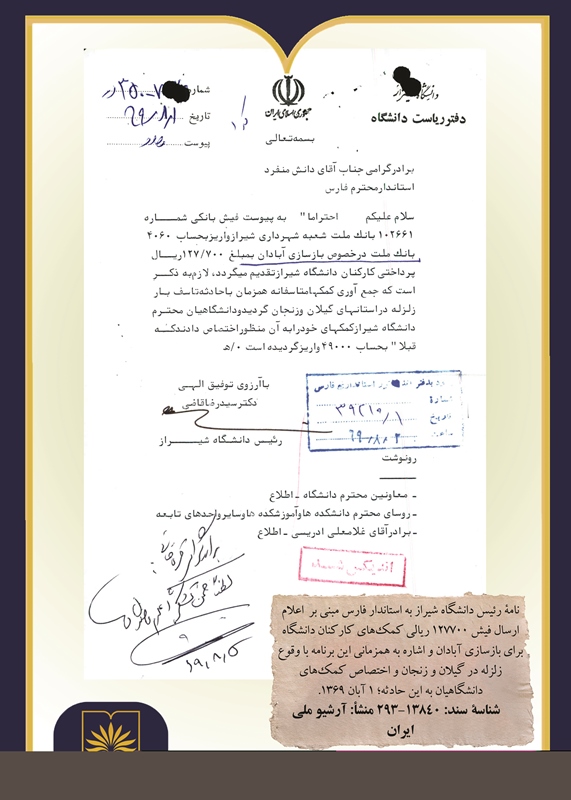 دانشگاه شیراز
دفتر ریاست دانشگاه
جمهوری اسلامی ایران
بسمه‌تعالی
شماره
تاریخ ۶۹/۸/۱
پیوست دارد
برادر گرامی جناب آقای دانش منفرد
استاندار محترم فارس
سلام علیکم احتراما" به پیوست فیش بانکی شمـــاره
۱۰۲۶۶۱ بانك ملت شعبه شهرداری شیراز واریز بحساب ۴۰۶۰
بانك ملت درخصوص بازسازی آبادان بمبلغ ۱۲۷/۷۰۰ریـــال
پرداختی کارکنان دانشگاه شیراز تقدیم میگردد، لازم به ذکـــر
است که جمع آوری کمکها متاسفانه همزمان با حادثه تاسف بـار
زلزله در استانهای گیلان وزنجان گردید و دانشگاهیان محتـرم
دانشگاه شیراز کمکهای خود را به آن منظور اختصاص دادند کــه
قبلا" بحساب ۴۹۰۰۰ واریز گردیده است ۰/ه
با آرزوی توفیق الهـی
دکتر سید رضا قاضی
رئیس دانشگاه شیــــراز
استانداری فارس
شماره ۳۹۲۱۰/۱
تاریخ ۶۹/۸/۲
ساعت
رونوشت
ـ معاونین محترم دانشگاه ـ اطلاع
ـ روسای محترم دانشکده ها و آموزشکده ها و سایر واحدهای تابعه
ـ برادر آقای غلامعلی ادریسی ـ اطلاع
اندیکس شـــد
نامهٔ رئیس دانشگاه شیراز به استاندار فارس مبنی بر اعلام
ارسال فیش ۱۲۷۷۰۰ ریالی کمک‌های کارکنان دانشگاه
برای بازسازی آبادان و اشاره به همزمانی این برنامه با وقوع
زلزله در گیلان و زنجان و اختصاص کمک‌های
دانشگاهیان به این حادثه؛ ۱ آبان ۱۳۶۹.
شناسهٔ سند: ۱۳۸۴۰-۲۹۳ منشأ: آرشیو ملی
ایران